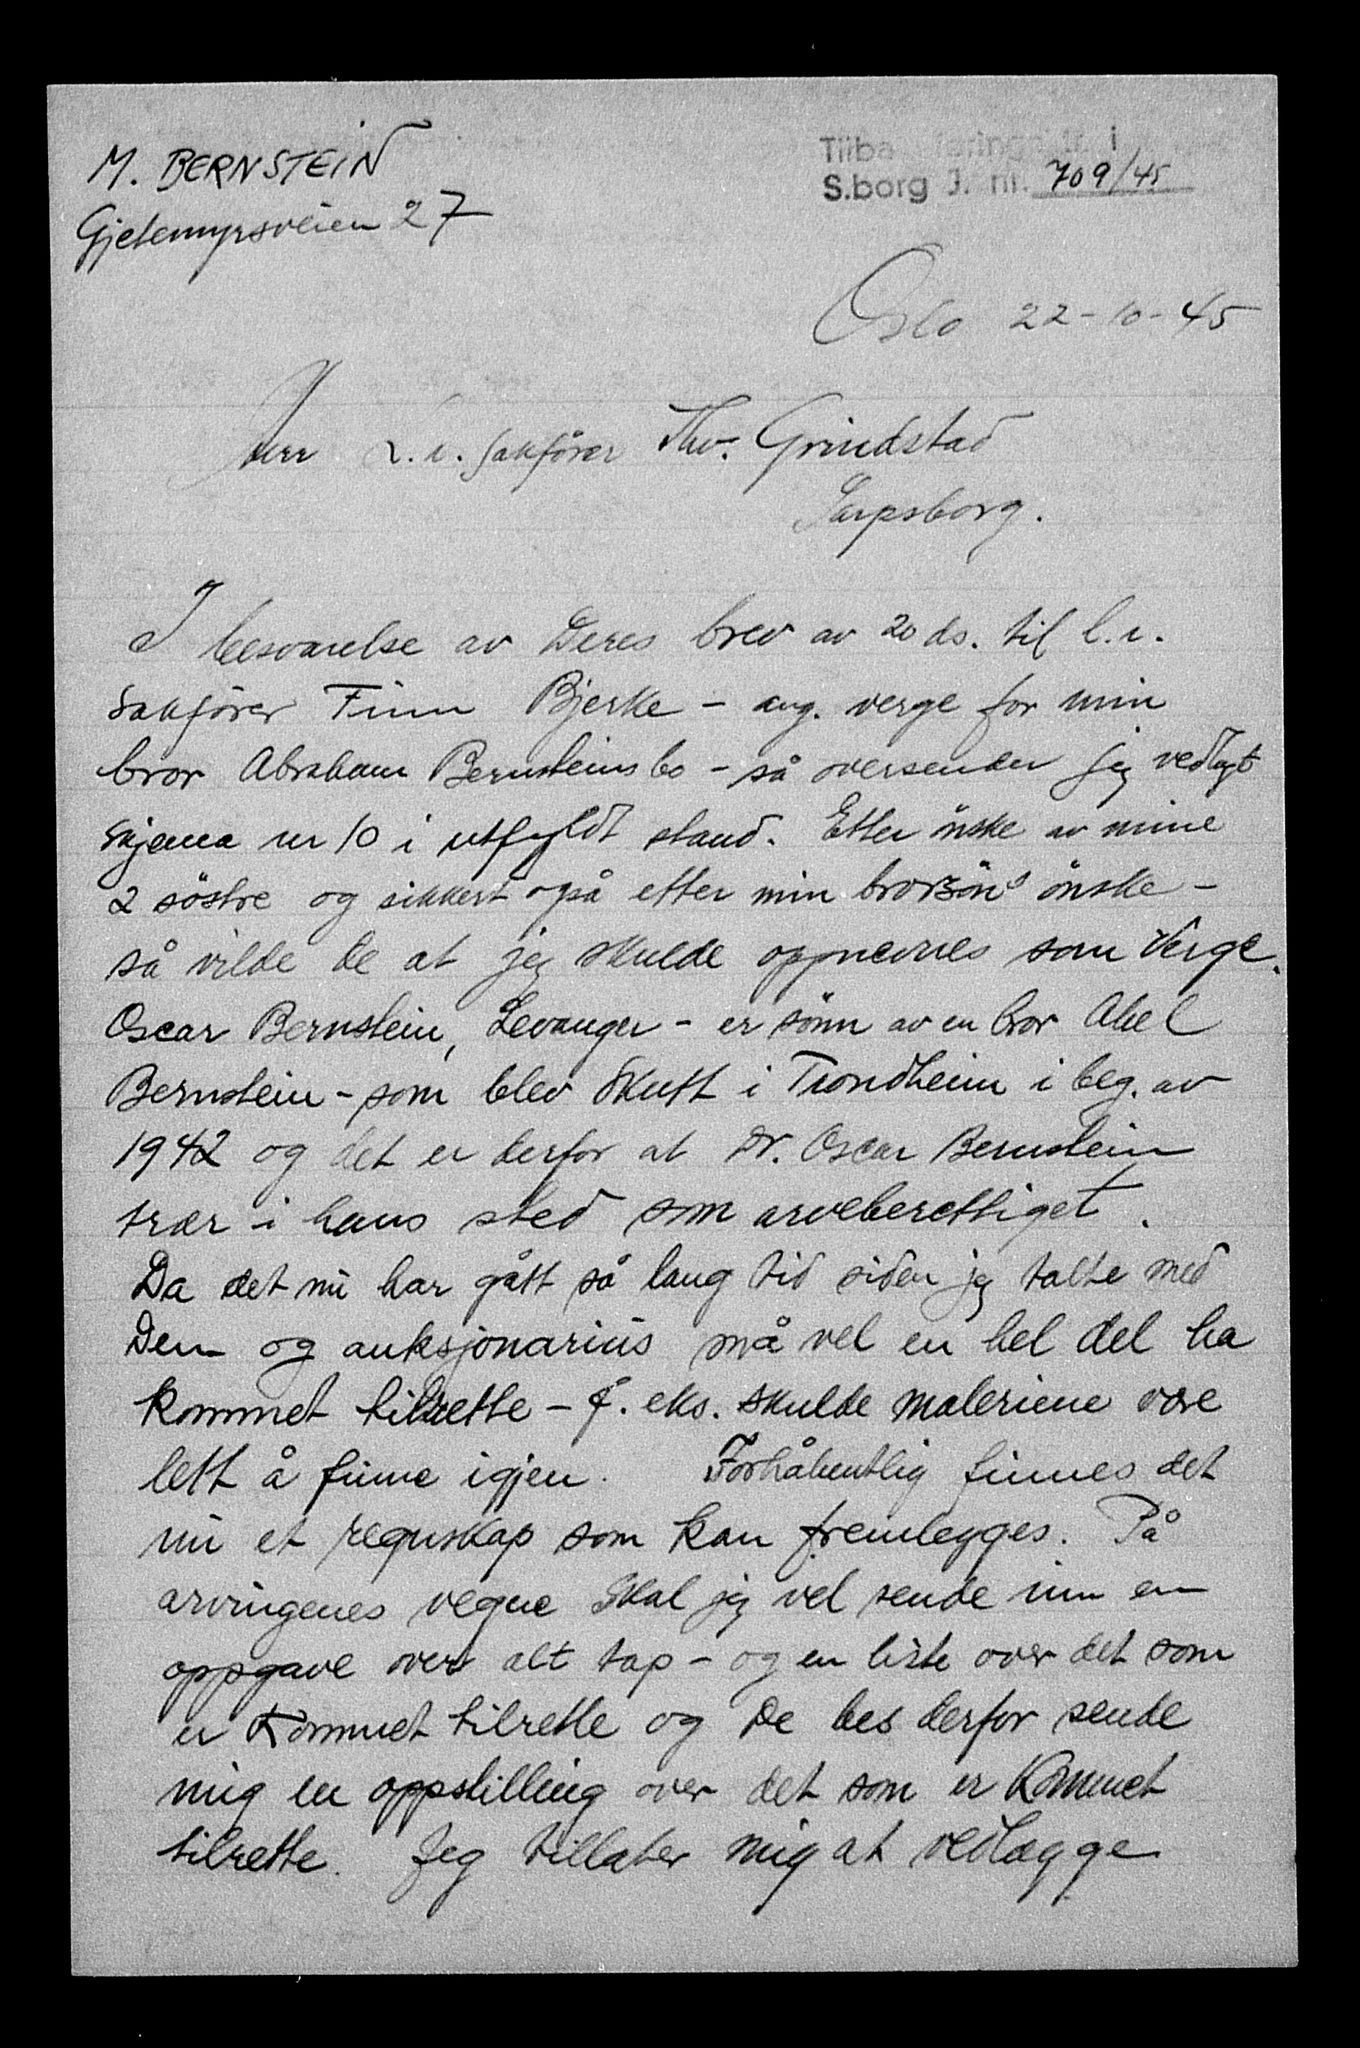 M. BERNSTEIN
Gjetemyrsveien 27
S.borg J. nr. 709/45
Oslo 22-10-45
Herr L.r. sakfører Thv. Grindstad
Sarpsborg.
I besvarelse av Deres brev av 20 ds. til l.r.
sakfører Finn Bjerke - ang. verge for min
bror Abraham Bernsteins bo - så oversender jeg vedlagt
skjema nr 10 i utfyldt stand. Etter ønske av mine
2 søstre og sikkert også etter min brorsøns ønske -
så vilde de at jeg skulde oppnevnes som Verge.
Oscar Bernstein, Levanger - er sønn av en bror Abel
Bernstein - som blev skutt i Trondheim i beg. av
1942 og det er derfor at Dr. Oscar Bernstein
trær i hans sted som arveberettiget.
Da det nu har gått så lang tid siden jeg talte med
Dem og auksjonarius må vel en hel del ha
kommet tilrette - f. eks. skulde maleriene være
lett å finne igjen. Forhåbentlig finnes det
nu et regnskap som kan fremlegges. På
arvingenes vegne skal jeg vel sende inn en
oppgave over alt tap - og en liste over det som
er kommet tilrette og De bes derfor sende
mig en oppstilling over det som er kommet
tilrette. Jeg tillater mig at vedlægge